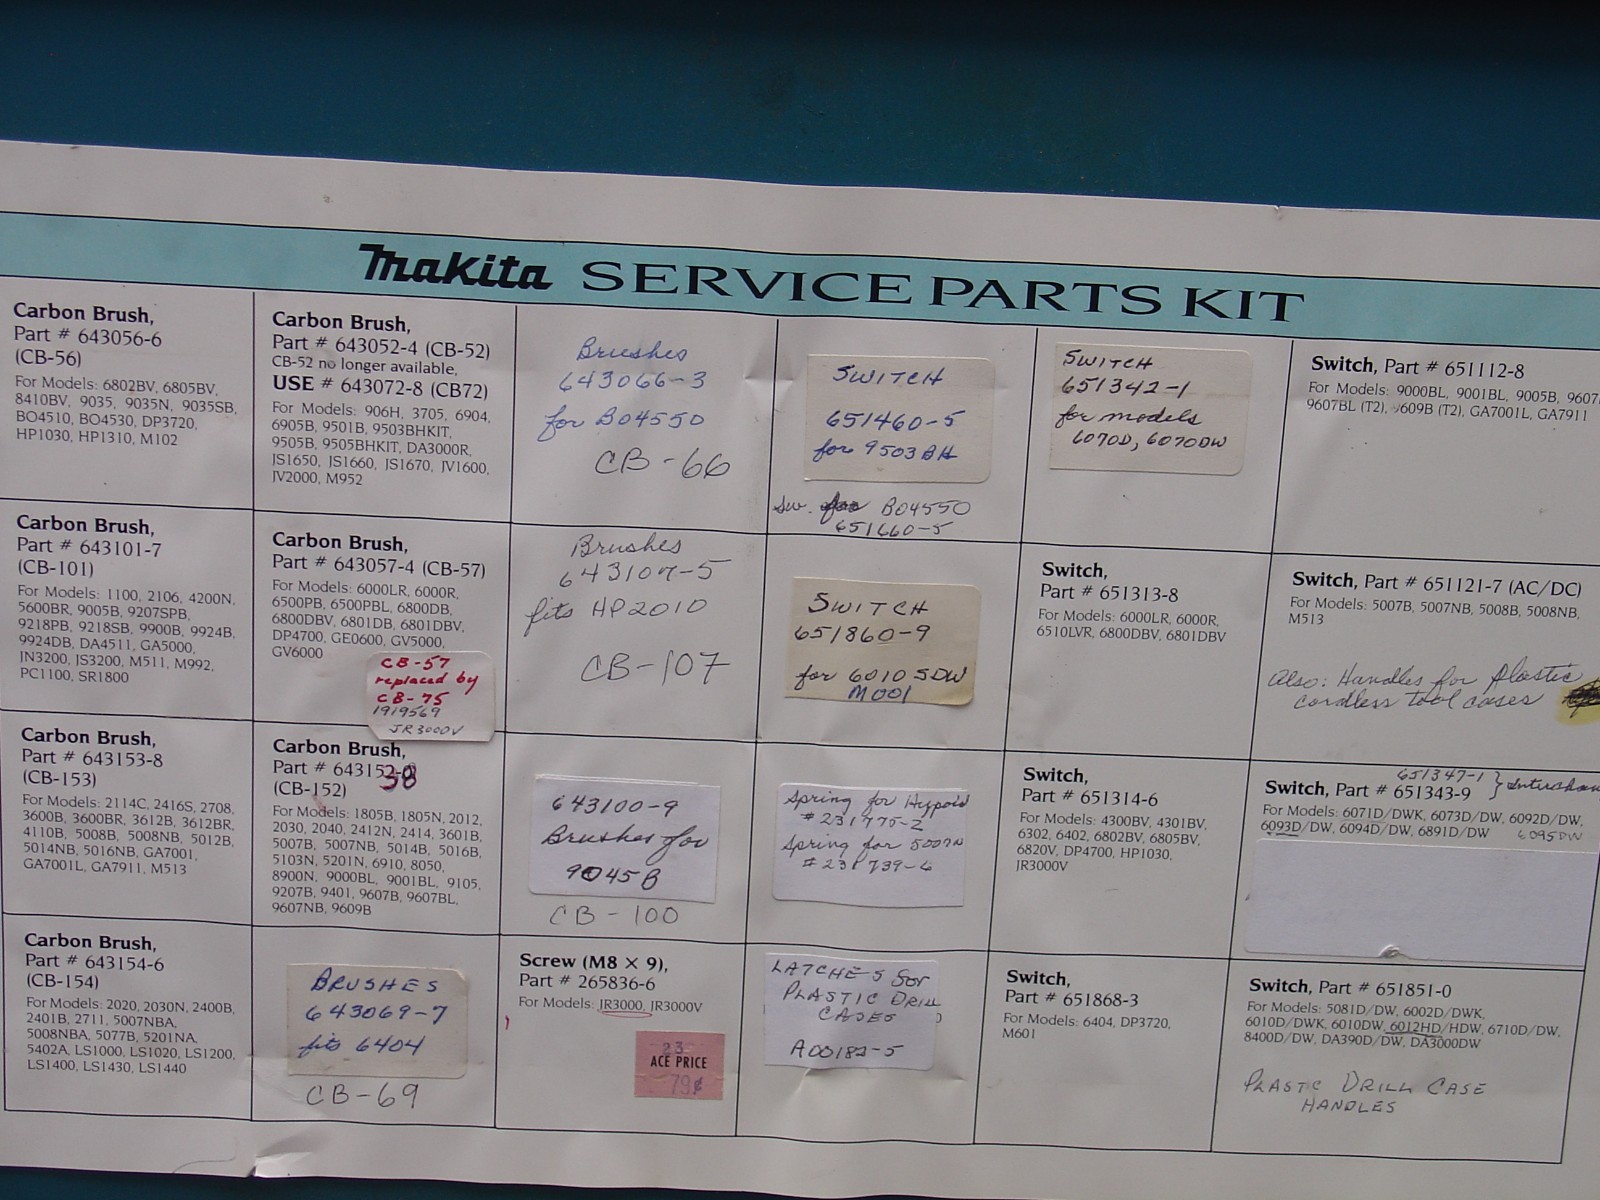 Makita SERVICE PARTS KIT
Carbon Brush,
Part # 643056-6
(CB-56)
For Models: 6802BV, 6805BV,
8410BV, 9035, 9035N, 9035SB,
BO4510, BO4530, DP3720,
HP1030, HP1310, M102
Carbon Brush,
Part # 643052-4 (CB-52)
CB-52 no longer available,
USE # 643072-8 (CB72)
For Models: 906H, 3705, 6904,
6905B, 9501B, 9503BHKIT,
9505B, 9505BHKIT, DA3000R,
JS1650, JS1660, JS1670, JV1600,
JV2000, M952
Brushes
643066-3
for BO4550
CB-66
SWITCH
651460-5
for 9503BH
Sw. for BO4550
651660-5
SWITCH
651342-1
for models
6070D, 6070DW
Switch, Part # 651112-8
For Models: 9000BL, 9001BL, 9005B, 9607
9607BL (T2), 9609B (T2), GA7001L, GA7911
Carbon Brush,
Part # 643101-7
(CB-101)
For Models: 1100, 2106, 4200N,
5600BR, 9005B, 9207SPB,
9218PB, 9218SB, 9900B, 9924B,
9924DB, DA4511, GA5000,
JN3200, JS3200, M511, M992,
PC1100, SR1800
Carbon Brush,
Part # 643057-4 (CB-57)
For Models: 6000LR, 6000R,
6500PB, 6500PBL, 6800DB,
6800DBV, 6801DB, 6801DBV,
DP4700, GE0600, GV5000,
GV6000
CB-57
replaced by
CB-75
1919569
JR3000V
Brushes
643107-5
fits HP2010
CB-107
SWITCH
651860-9
for 6010SDW
M001
Switch,
Part # 651313-8
For Models: 6000LR, 6000R,
6510LVR, 6800DBV, 6801DBV
Switch, Part # 651121-7 (AC/DC)
For Models: 5007B, 5007NB, 5008B, 5008NB,
M513
Also: Handles for Plastic
cordless tool cases
Carbon Brush,
Part # 643153-8
(CB-153)
For Models: 2114C, 2416S, 2708,
3600B, 3600BR, 3612B, 3612BR,
4110B, 5008B, 5008NB, 5012B,
5014NB, 5016NB, GA7001,
GA7001L, GA7911, M513
Carbon Brush,
Part # 643152-
(CB-152)
For Models: 1805B, 1805N, 2012,
2030, 2040, 2412N, 2414, 3601B,
5007B, 5007NB, 5014B, 5016B,
5103N, 5201N, 6910, 8050,
8900N, 9000BL, 9001BL, 9105,
9207B, 9401, 9607B, 9607BL,
9607NB, 9609B
643100-9
Brushes for
9045B
CB-100
Spring for Hypoid
#231775-2
Spring for 5007N
#231739-6
Switch,
Part # 651314-6
For Models: 4300BV, 4301BV,
6302, 6402, 6802BV, 6805BV,
6820V, DP4700, HP1030,
JR3000V
651347-1
Switch, Part # 651343-9
For Models: 6071D/DWK, 6073D/DW, 6092D/DW,
6093D/DW, 6094D/DW, 6891D/DW 6095DW
Carbon Brush,
Part # 643154-6
(CB-154)
For Models: 2020, 2030N, 2400B,
2401B, 2711, 5007NBA,
5008NBA, 5077B, 5201NA,
5402A, LS1000, LS1020, LS1200,
LS1400, LS1430, LS1440
BRUSHES
643069-7
fits 6404
CB-69
Screw (M8 × 9),
Part # 265836-6
For Models: JR3000, JR3000V
23
ACE PRICE
79¢
LATCHES for
PLASTIC DRILL
CASES
A00182-5
Switch,
Part # 651868-3
For Models: 6404, DP3720,
M601
Switch, Part # 651851-0
For Models: 5081D/DW, 6002D/DWK,
6010D/DWK, 6010DW, 6012HD/HDW, 6710D/DW,
8400D/DW, DA390D/DW, DA3000DW
PLASTC DRILL CASE
HANDLES